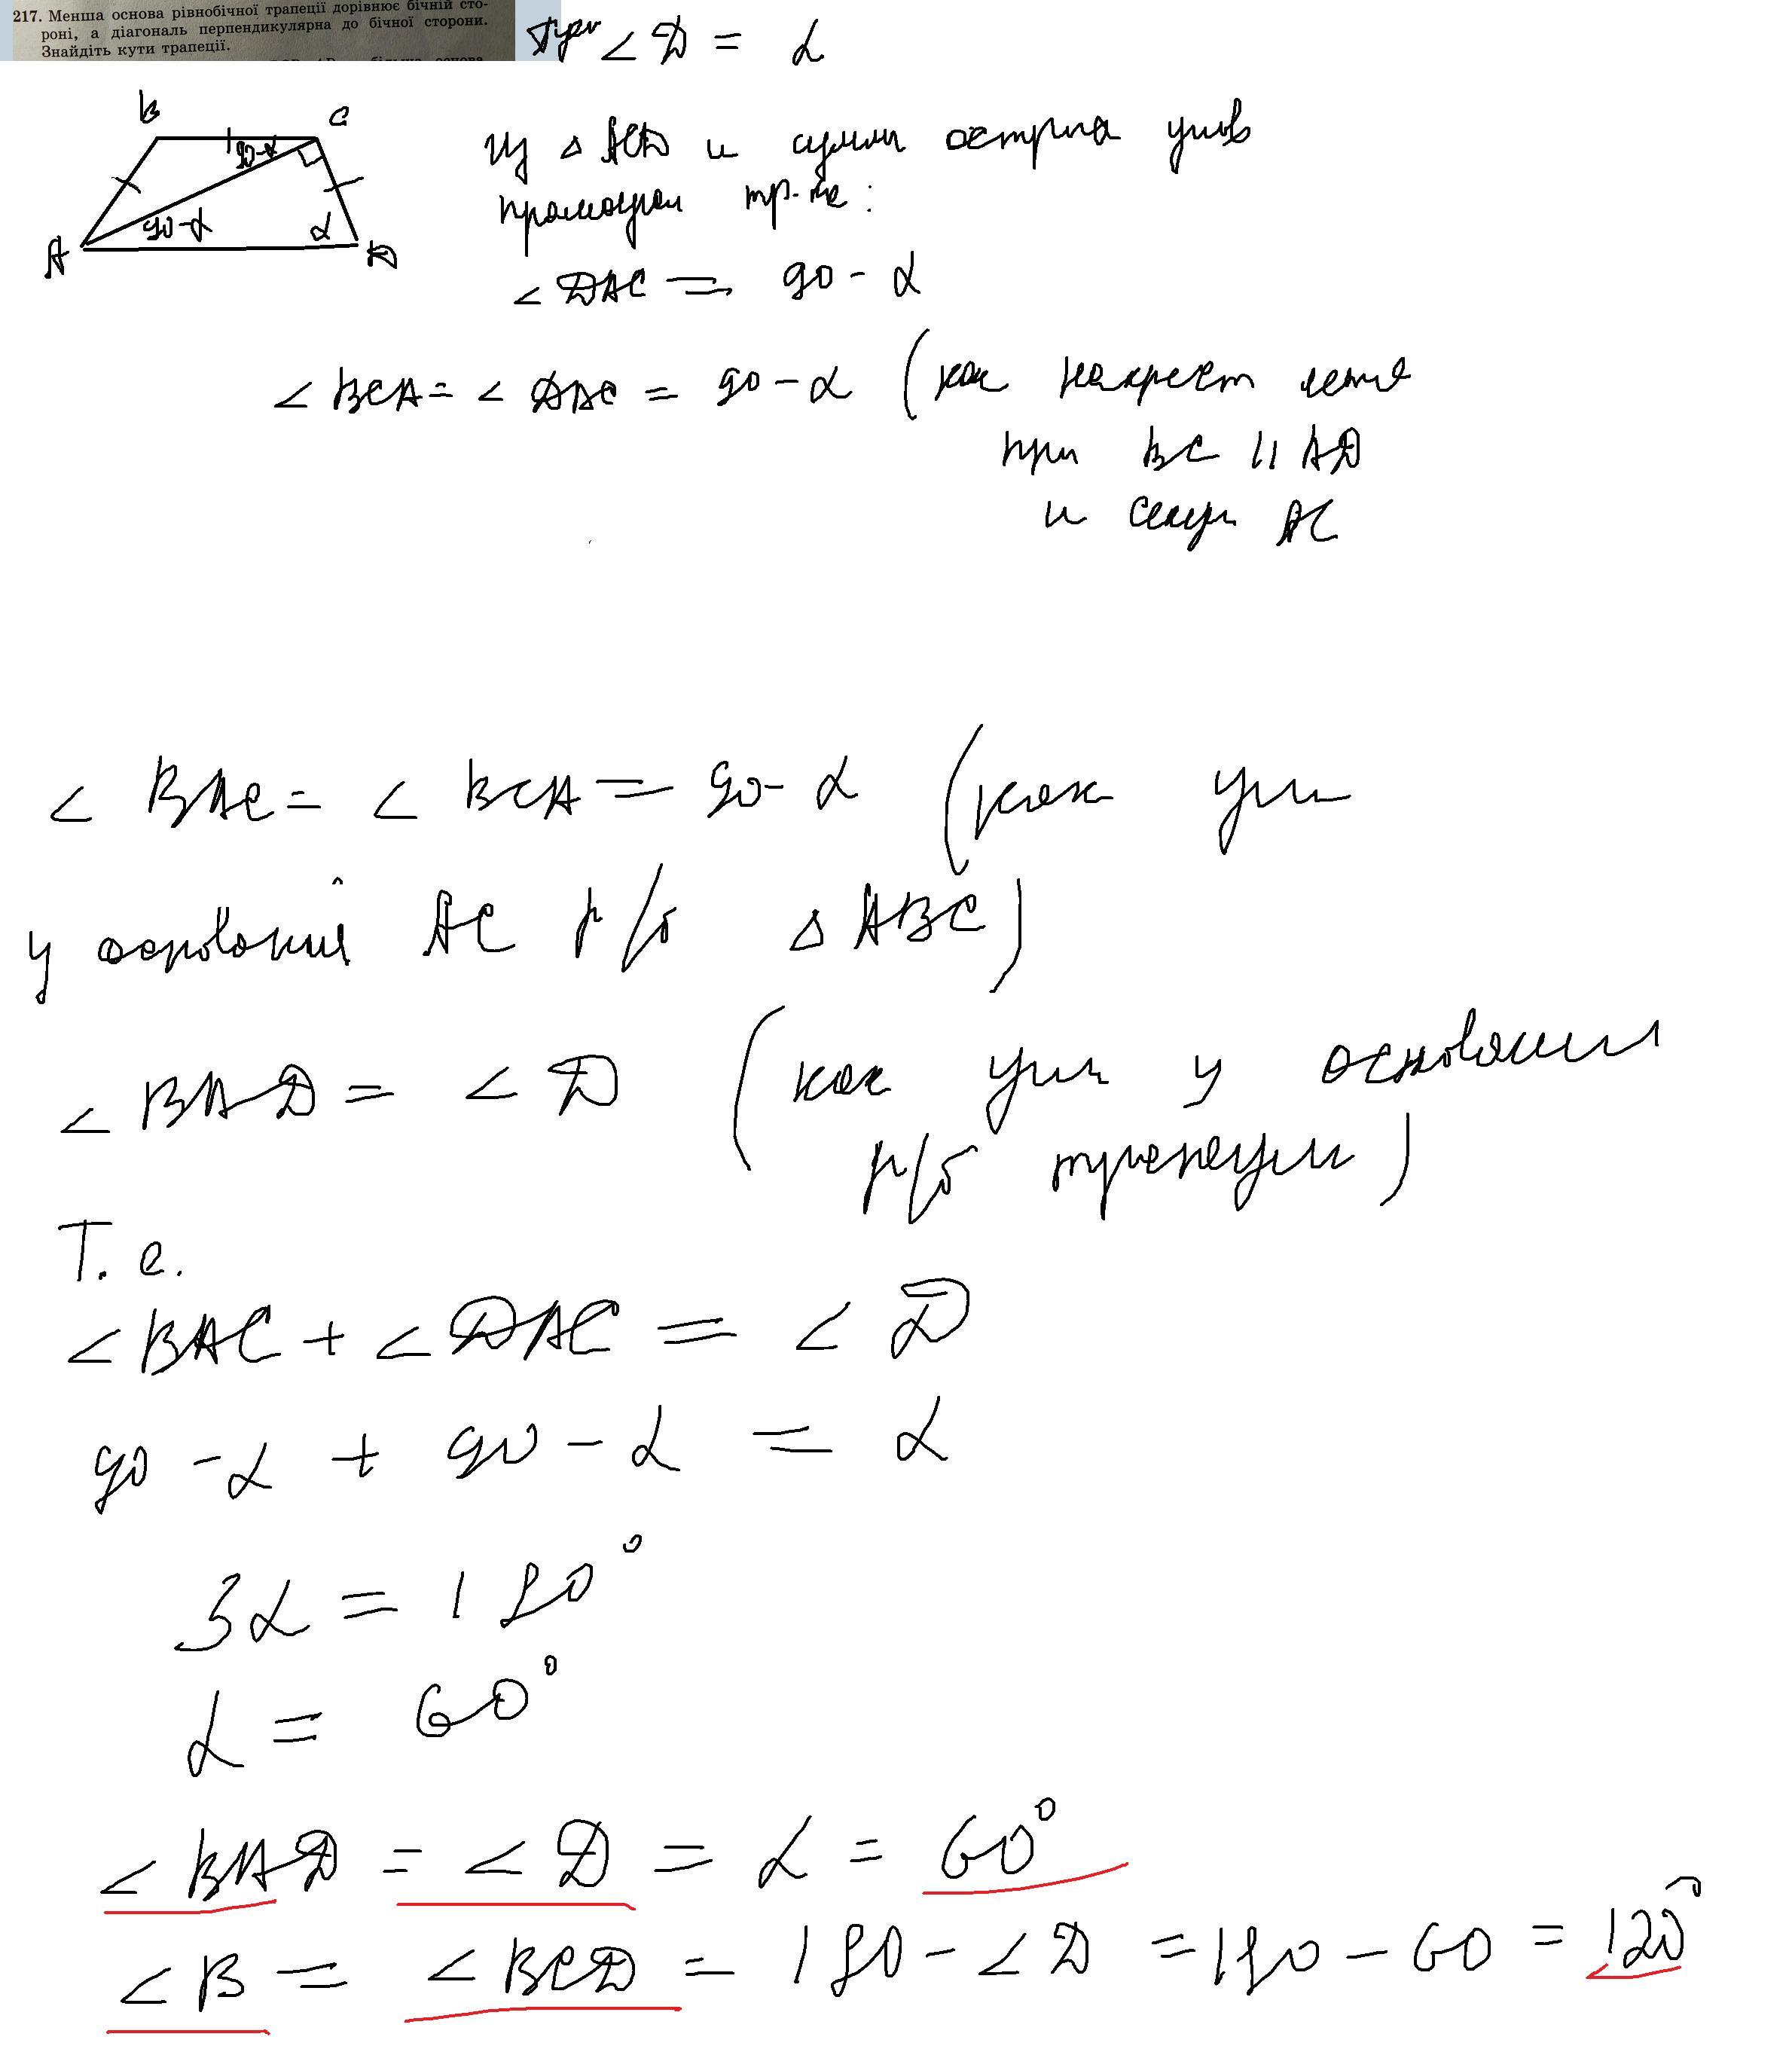 217. Менша основа рівнобічної трапеції дорівнює бічній сто-
роні, а діагональ перпендикулярна до бічної сторони.
Знайдіть кути трапеції.
∠D = α
B C
90-α
90-α α
A D
из △ACD и суммы острых углов
тр-ка:
∠DAC = 90-α
∠BCA = ∠DAC = 90-α (как накрест леж
при BC || AD
и секущ AC
∠BAC = ∠BCA = 90-α (как углы
у основания AC р/б △ABC)
∠BAD = ∠D (как углы у основания
р/б трапеции)
Т. е.
∠BAC + ∠DAC = ∠D
90-α + 90-α = α
3α = 180°
α = 60°
∠BAD = ∠D = α = 60°
∠B = ∠BCD = 180-∠D = 180-60 = 120°